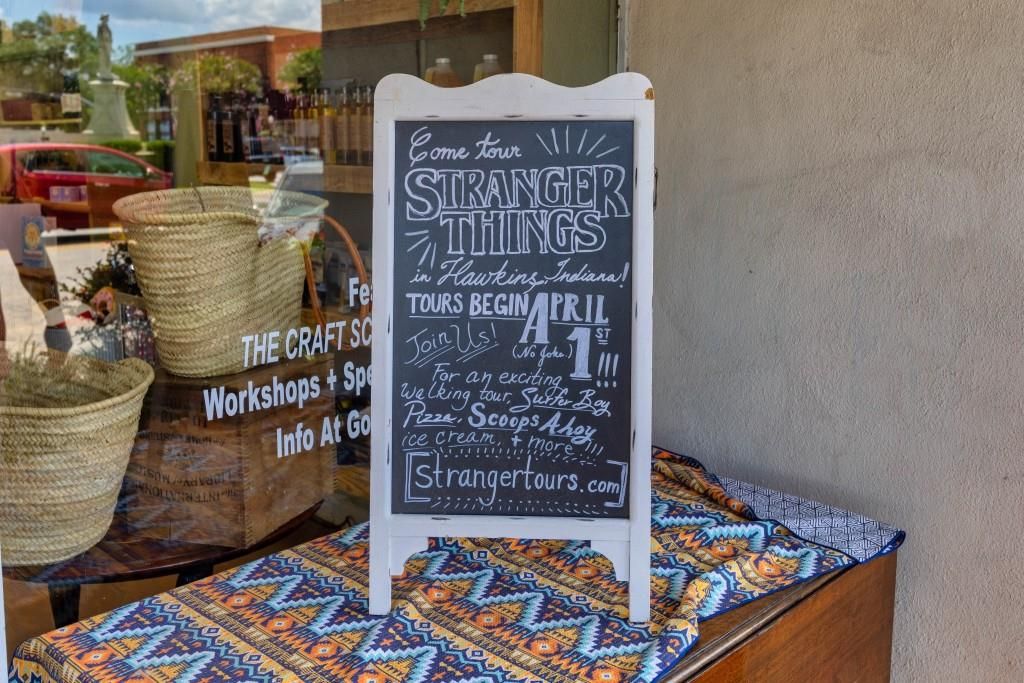 Come tour
STRANGER
THINGS
in Hawkins, Indiana!
TOURS BEGIN APRIL
1ST!!!
Join Us!
(No Joke.)
For an exciting
walking tour, Surfer Boy
Pizza, Scoops Ahoy
ice cream, + more!!!
[strangertours.com]
THE CRAFT
Workshops +
Info At